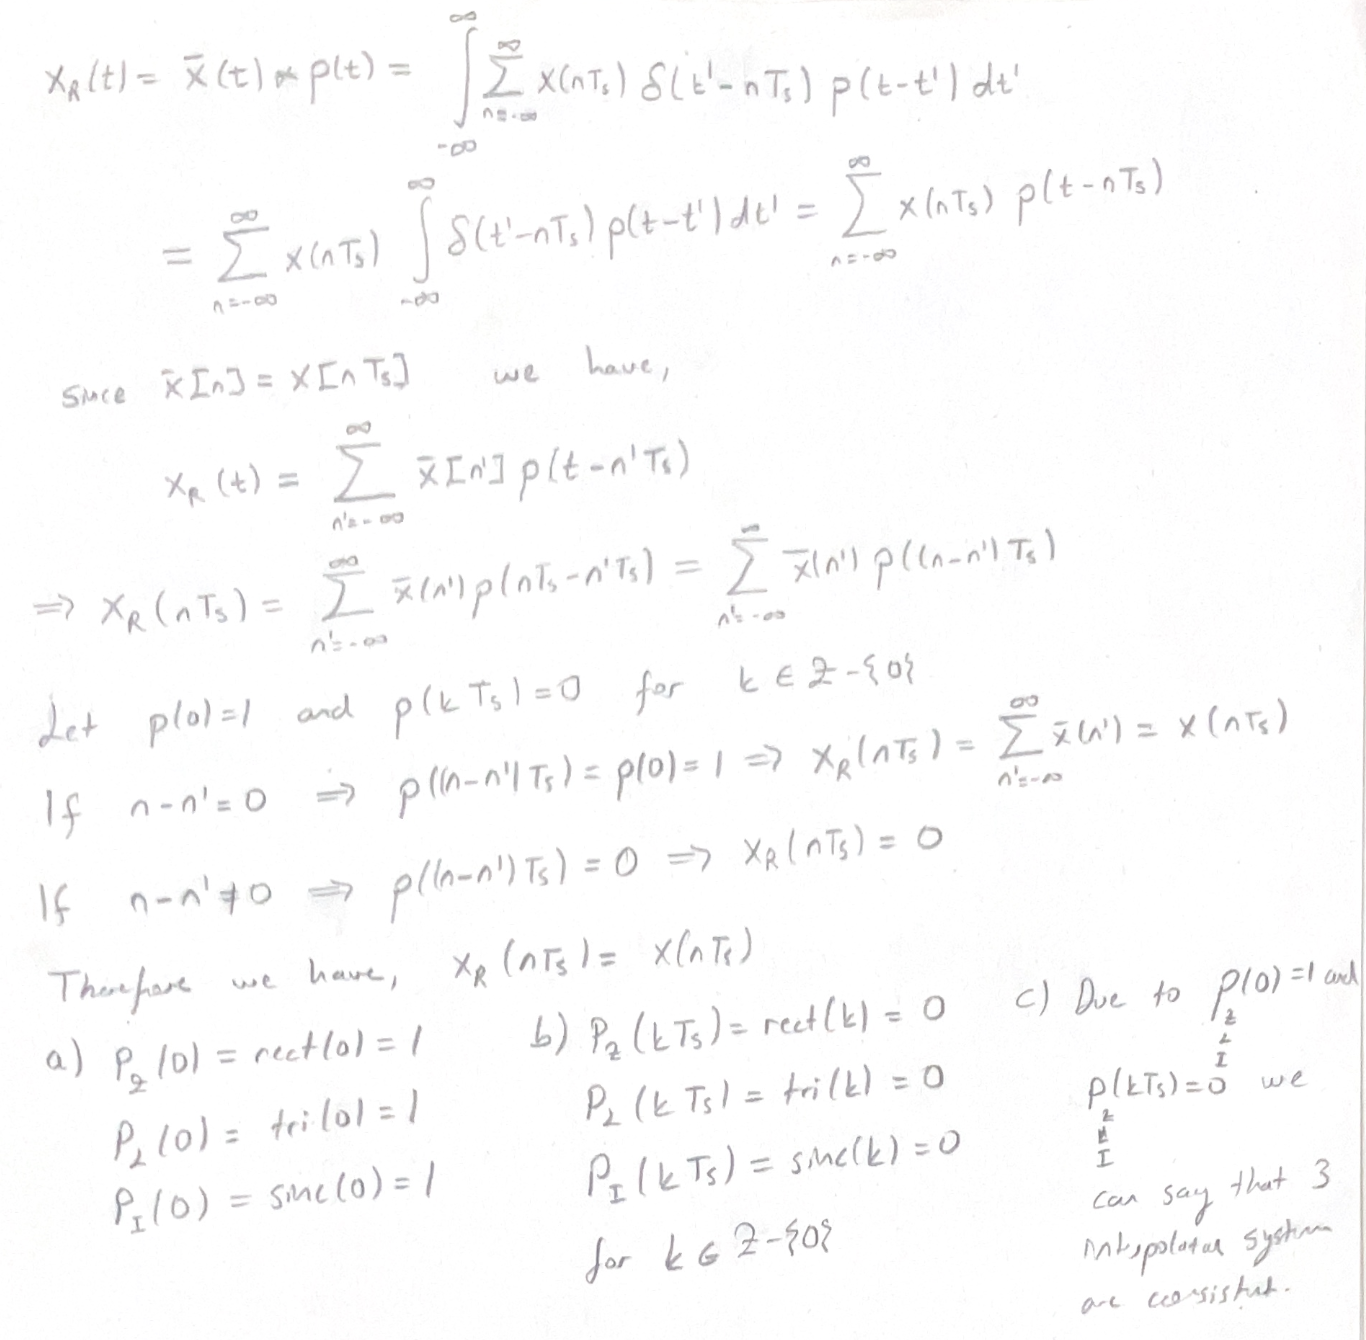 x_R(t) = x̄(t) * p(t) = ∫_{-∞}^{∞} ∑_{n=-∞}^{∞} x(nT_s) δ(t'-nT_s) p(t-t') dt'
= ∑_{n=-∞}^{∞} x(nT_s) ∫_{-∞}^{∞} δ(t'-nT_s) p(t-t') dt' = ∑_{n=-∞}^{∞} x(nT_s) p(t-nT_s)
Since x̄[n] = x[nT_s] we have,
x_R(t) = ∑_{n'=-∞}^{∞} x̄[n'] p(t-n'T_s)
⇒ x_R(nT_s) = ∑_{n'=-∞}^{∞} x̄(n') p(nT_s-n'T_s) = ∑_{n'=-∞}^{∞} x̄(n') p((n-n')T_s)
Let p(0)=1 and p(kT_s)=0 for k ∈ Z-{0}
If n-n'=0 ⇒ p((n-n')T_s) = p(0) = 1 ⇒ x_R(nT_s) = ∑_{n'=-∞}^{∞} x̄(n') = x(nT_s)
If n-n'≠0 ⇒ p((n-n')T_s) = 0 ⇒ x_R(nT_s) = 0
Therefore we have, x_R(nT_s) = x(nT_s)
a) P_Z(0) = rect(0) = 1
P_L(0) = tri(0) = 1
P_I(0) = sinc(0) = 1
b) P_Z(kT_s) = rect(k) = 0
P_L(kT_s) = tri(k) = 0
P_I(kT_s) = sinc(k) = 0
for k ∈ Z-{0}
c) Due to p(0)=1 and
Z
L
I
p(kT_s)=0 we
Z
I
can say that 3
interpolator system
are consistent.